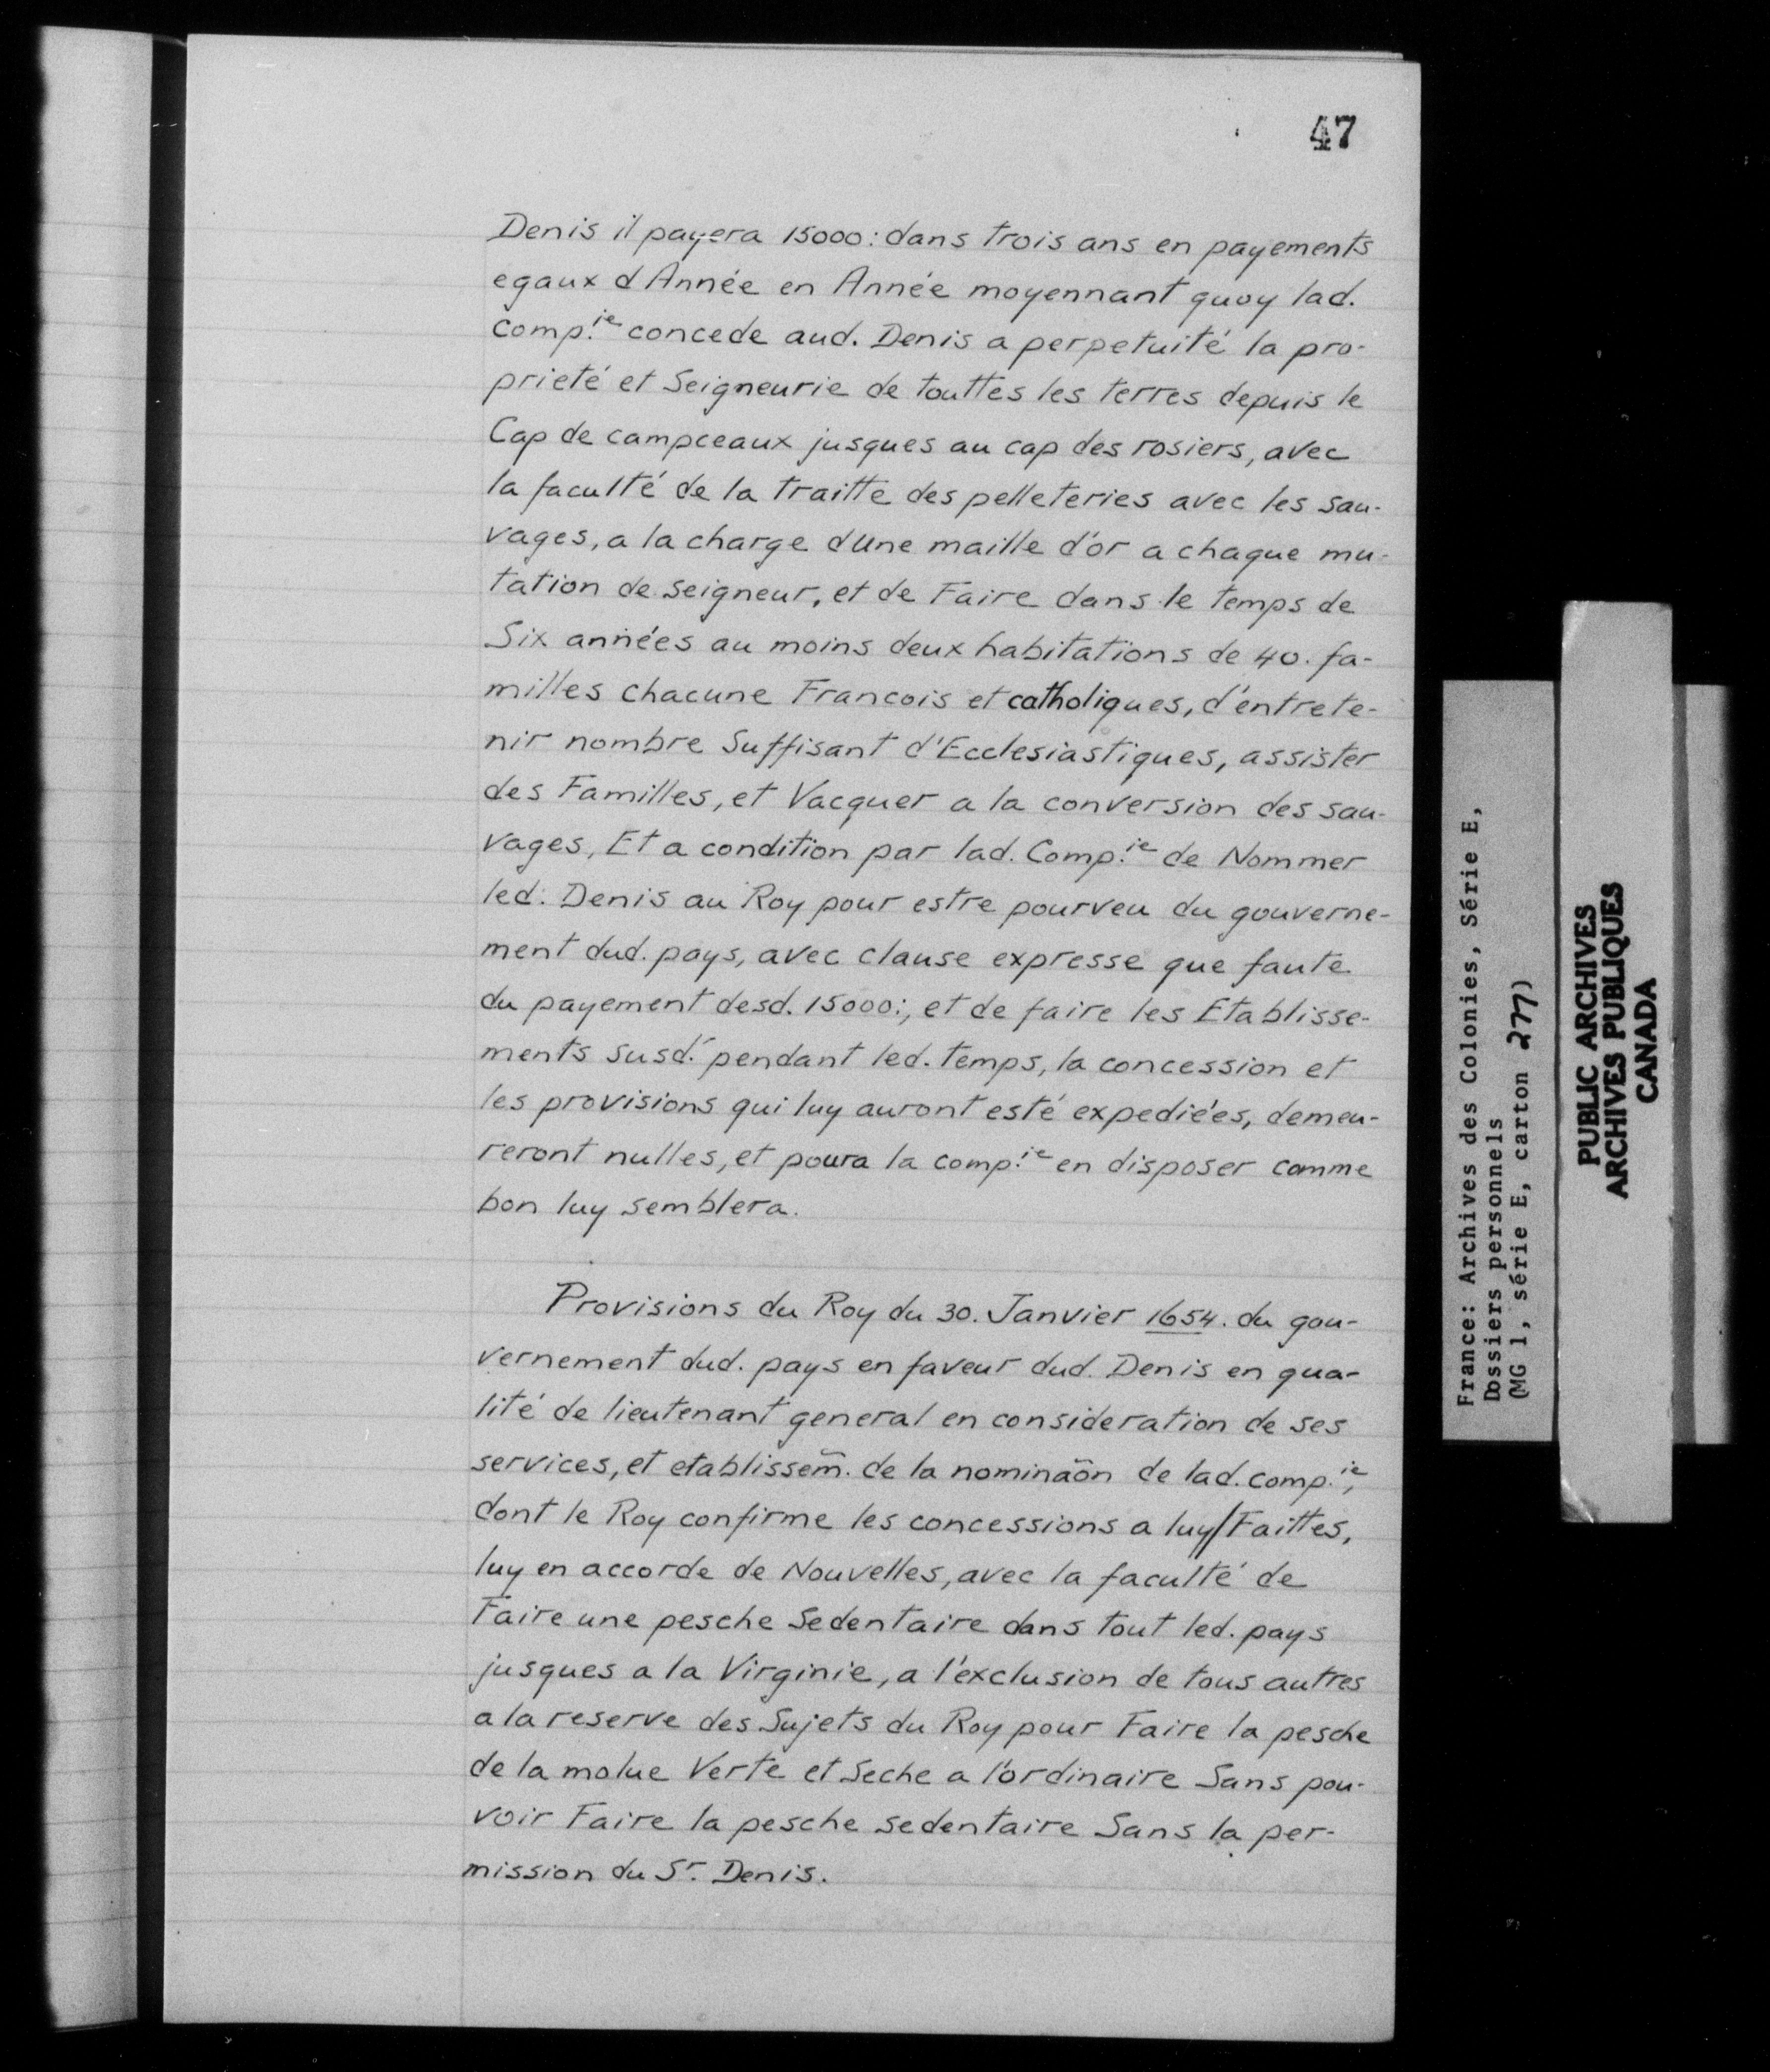 47
Denis il payera 15000: dans trois ans en payements
egaux d Année en Année moyennant quoy lad.
comp.ie concede aud. Denis a perpetuité la pro-
prieté et Seigneurie de touttes les terres depuis le
Cap de campceaux jusques au cap des rosiers, avec
la faculté de la traitte des pelleteries avec les sau-
vages, a la charge d'une maille d'or a chaque mu-
tation de seigneur, et de Faire dans le temps de
Six années au moins deux habitations de 40. fa-
milles chacune Francois et catholiques, d'entrete-
nir nombre Suffisant d'Ecclesiastiques, assister
des Familles, et Vacquer a la conversion des sau-
vages, Et a condition par lad. Comp.ie de Nommer
led. Denis au Roy pour estre pourveu du gouverne-
ment dud. pays, avec clause expresse que faute
du payement desd. 15000:, et de faire les Etablisse-
ments susd. pendant led. temps, la concession et
les provisions qui luy auront esté expediées, demeu-
reront nulles, et poura la comp.ie en disposer comme
bon luy semblera.
Provisions du Roy du 30. Janvier 1654. du gou-
vernement dud. pays en faveur dud. Denis en qua-
lité de lieutenant general en consideration de ses
services, et etablissem̃. de la nominaõn de lad. comp.ie,
dont le Roy confirme les concessions a luy/Faittes,
luy en accorde de Nouvelles, avec la faculté de
Faire une pesche Sedentaire dans tout led. pays
jusques a la Virginie, a l'exclusion de tous autres
a la reserve des Sujets du Roy pour Faire la pesche
de la molue Verte et Seche a l'ordinaire Sans pou-
voir Faire la pesche sedentaire Sans la per-
mission du Sr. Denis.
France: Archives des Colonies, Série E,
Dossiers personnels
(MG 1, série E, carton 277)
PUBLIC ARCHIVES
ARCHIVES PUBLIQUES
CANADA